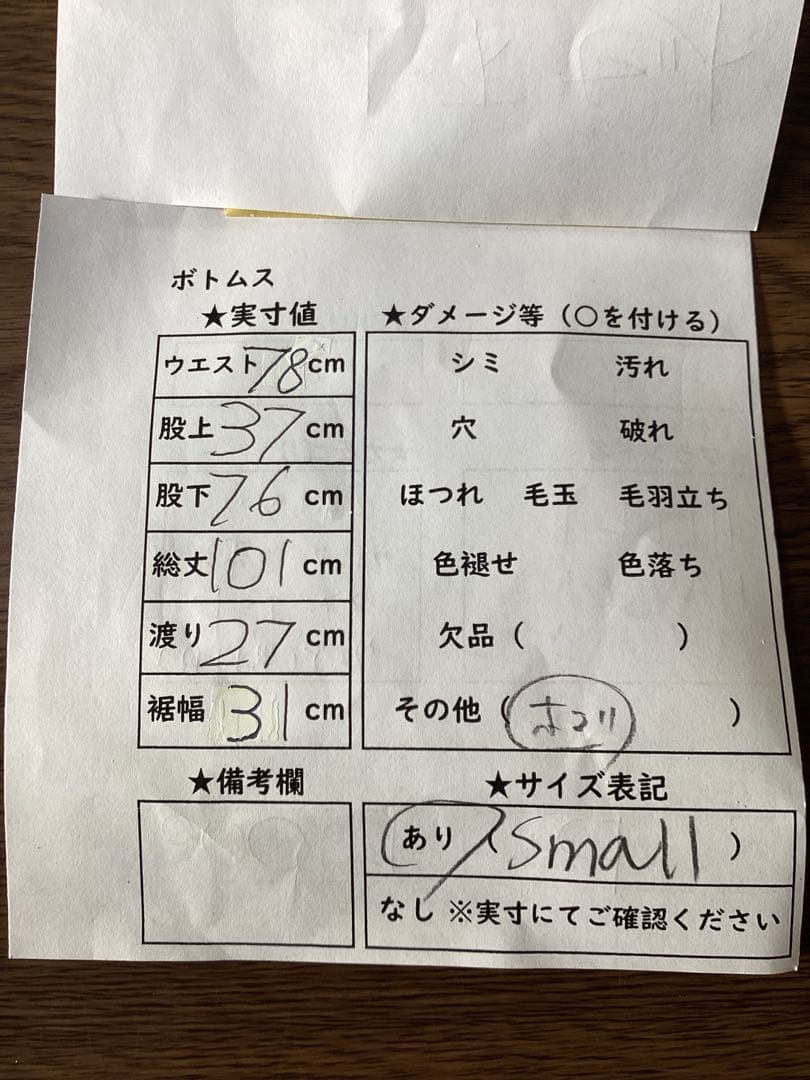 ボトムス
★実寸値
ウエスト 78 cm
股上 37 cm
股下 76 cm
総丈 101 cm
渡り 27 cm
裾幅 31 cm
★ダメージ等（○を付ける）
シミ 汚れ
穴 破れ
ほつれ 毛玉 毛羽立ち
色褪せ 色落ち
欠品（ ）
その他（ホコリ ）
★備考欄
★サイズ表記
あり（small）
なし ※実寸にてご確認ください